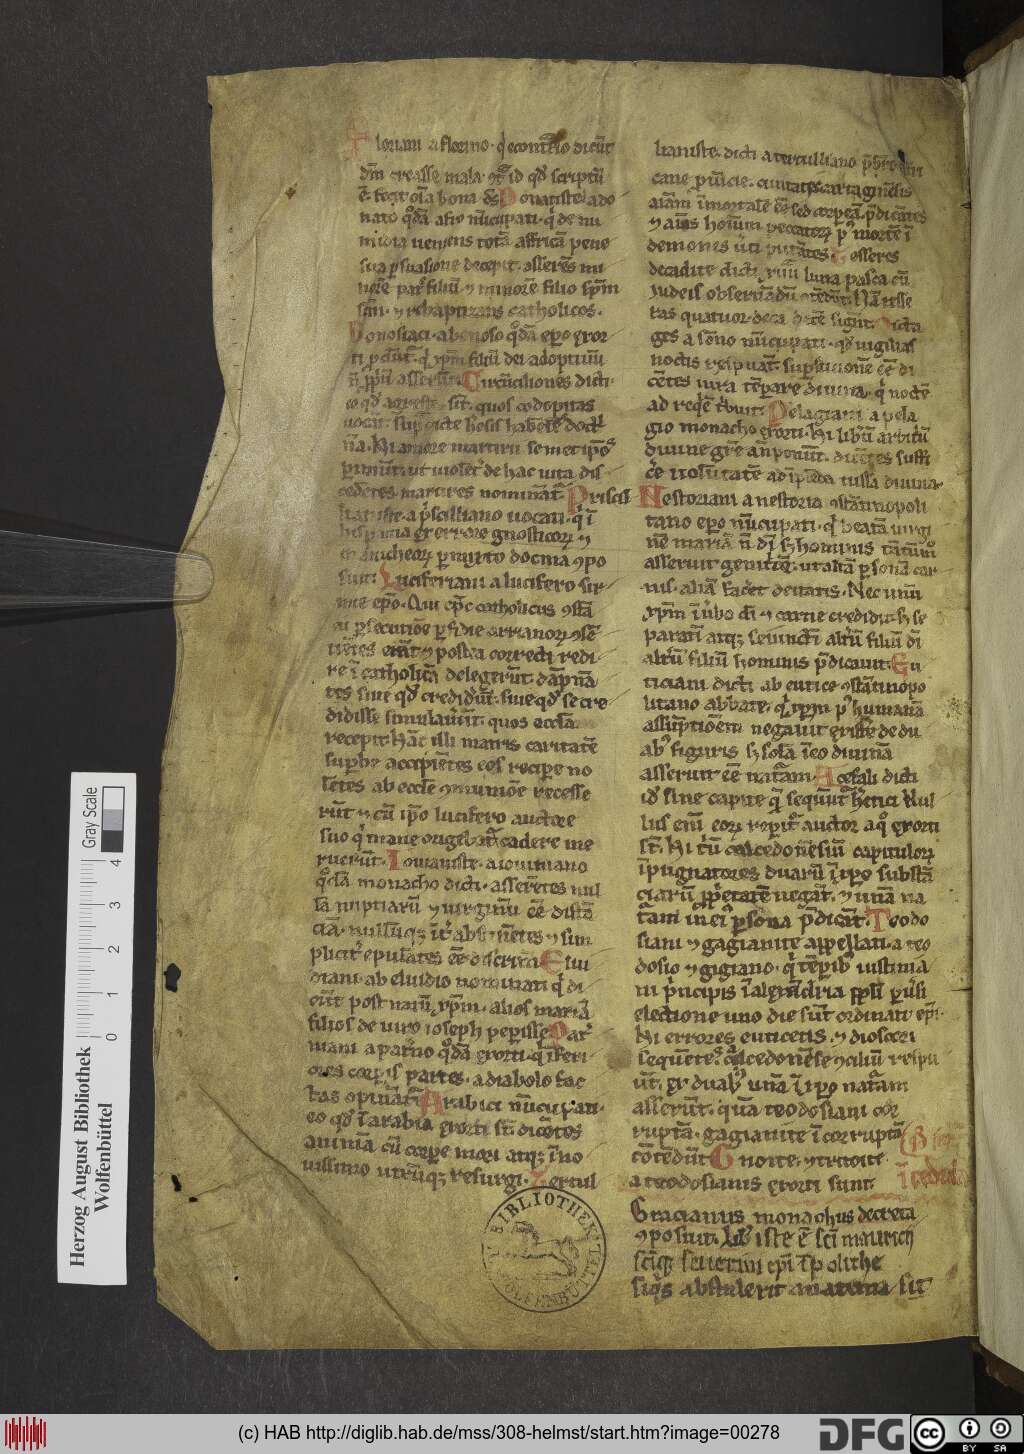 Floriani a florino. qi econtrio dicut
dm creasse mala. ɔtra id qd scriptu
e. fecit oia bona &c Donatiste a do
nato qdā afro nūcupati. qi de nu
midia ueniens totā affricā pene
sua psuasione decepit. asserēs mi
norē patr filiū ⁊ minorē filio spm
scm. ⁊ rebaptizans catholicos.
Bonosiaci. a bonoso qdā epo exor
ti pdūt. qi xpm filiū dei adoptiuū
n ppriū asserūt. Circūciliones dicti
eo qd agrestes sūt. quos codopitas
uocāt. supdicte hesis habētes doct
nā. Hi amore martirii semetipos
pimūt. ut uiolēt de hac uita dis
cedētes martires nominēt. Priscil
lianiste. a priscilliano uocati. qi ī
hispania ex errore gnosticoꝝ ⁊
manicheoꝝ pmixto docma ɔpo
suit. Luciferiani a lucifero sir
mie epo. Qui epc catholicus ɔstā
ti psecutiōe pfidie arrianoꝝ ɔsē
tiētes erāt ⁊ postea correcti redi
re ī catholicā delegerūt. dāpnā
tes siue qd credidūt. siue qd se cre
didisse simulauūt. quos eccla
recepit. Hāc illi matris caritatē
supbe accipiētes eos recipe no
lētes ab eccle ɔmuniōe recesse
rūt ⁊ cū ipo lucifero auctore
suo qi mane oriebatr cadere me
ruerūt. Iouianiste. a iouiniano
qdā monacho dicti. asserētes nul
lā nuptiarū ⁊ uirginū ee distā
ciā. nullūqꝫ it abstinētes ⁊ sim
plicit epulātes ee discrimē. Elui
diani. ab eluidio nominati qi di
cūt post natū xpm. alios mariā
filios de uiro ioseph pepisse. Pat
niani a patno qdā exorti. qi iferi
ores corpis partes. a diabolo fac
tas opināt. Arabici nūcupati.
eo qd i arabia exorti st. dicētes
animā cū corpe mori atqꝫ i no
uissimo utrūqꝫ resurgi. Tertul
lianiste. dicti a tertulliano
cane puicie. ciuitatis cartaginēsis
aiam imortalē ee sed corpeā pdicātes
⁊ aias hoium peccatoꝝ p mortē i
demones uti putātes. Tesseres
decadite dicti. xiiii luna pasca cū
iudeis obseruādū ɔtēdūt. Nā tesse
ras quatuor. deca decē signt. Nicta
ges a sōno nūcupati. qd uigilias
noctis respuāt. supstitionē ee di
cētes iura tēpare diuina. qi noctē
ad reqē tbuit. Pelagiani a pela
gio monacho exorti. Hi libū arbitū
diuine gre anponūt. dicētes suffi
cē uolūtatē ad iplēda iussa diuina.
Nestoriani a nestorio ɔstātinopoli
tano epo nūcupati. qi beatā uirgi
nē mariā n di sꝫ hominis tātūmo
asseruit genitcē. ut aliā psonā car
nis. aliā facet deitatis. Nec unū
xpm i ubo di ⁊ carne credidit. sꝫ se
paratī atqꝫ seiunctī altū filiū di
altū filiū hominis pdicauit. Eu
ticiani dicti ab eutice ɔstātinopo
litano abbate. qi xpm p humanā
assūptionem negauit existe de du
abꝰ figuris sꝫ solā i eo diuinā
asseruit ee natām. Acefali dicti
id sine capite qi sequūt hetici. Nul
lus eni eoꝝ repit auctor a qo exorti
st. Hi triū calcedonēsiū capituloꝝ
ipugnatores duarū i xpo substā
ciarū ppetatē negāt. ⁊ unā na
tām in ei psona pdicāt. Teodo
siani ⁊ gagianite appellati. a teo
dosio ⁊ gigiano. qi tēpib iustinia
ni pincipis i alexādria ppli pusi
electione uno die sūt ordinati epi.
Hi errores euticetis. ⁊ dioscori
sequētes calcedonēse ɔciliū respu
ūt. ex duabꝰ unā i xpo natām
asserūt. quā teodosiani cor
ruptā. gagianite icorruptā
cōtēdūt. Gnoite. ⁊ tritoite
a teodosianis exorti sunt.
Gracianus monachus decreta
ɔposuit. Lib iste e sci mauricii
sciqꝫ seuerini epi
Siqs abstulerit anatema sit
BIBLIOTHEK
WOLFENBÜTTEL
Herzog August Bibliothek
Wolfenbüttel
Gray Scale
0 1 2 3 4
(c) HAB http://diglib.hab.de/mss/308-helmst/start.htm?image=00278
DFG
cc
BY SA